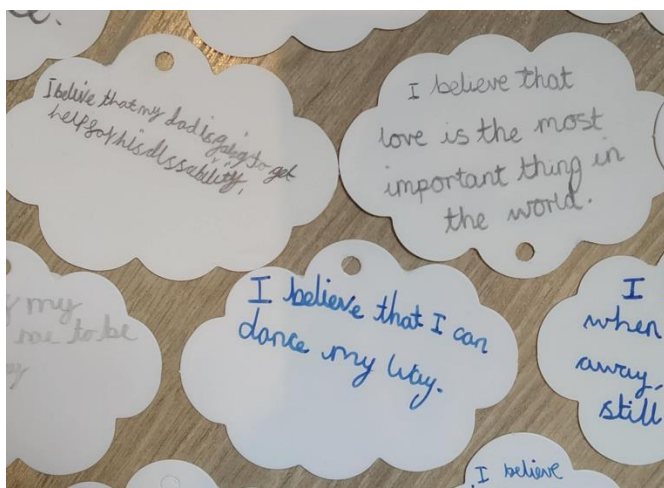 I belive that my dad is going to get
help for his dissability.
I believe that
love is the most
important thing in
the world.
my
me to be
I believe that I can
dance my way.
I
when
away,
still
I believe